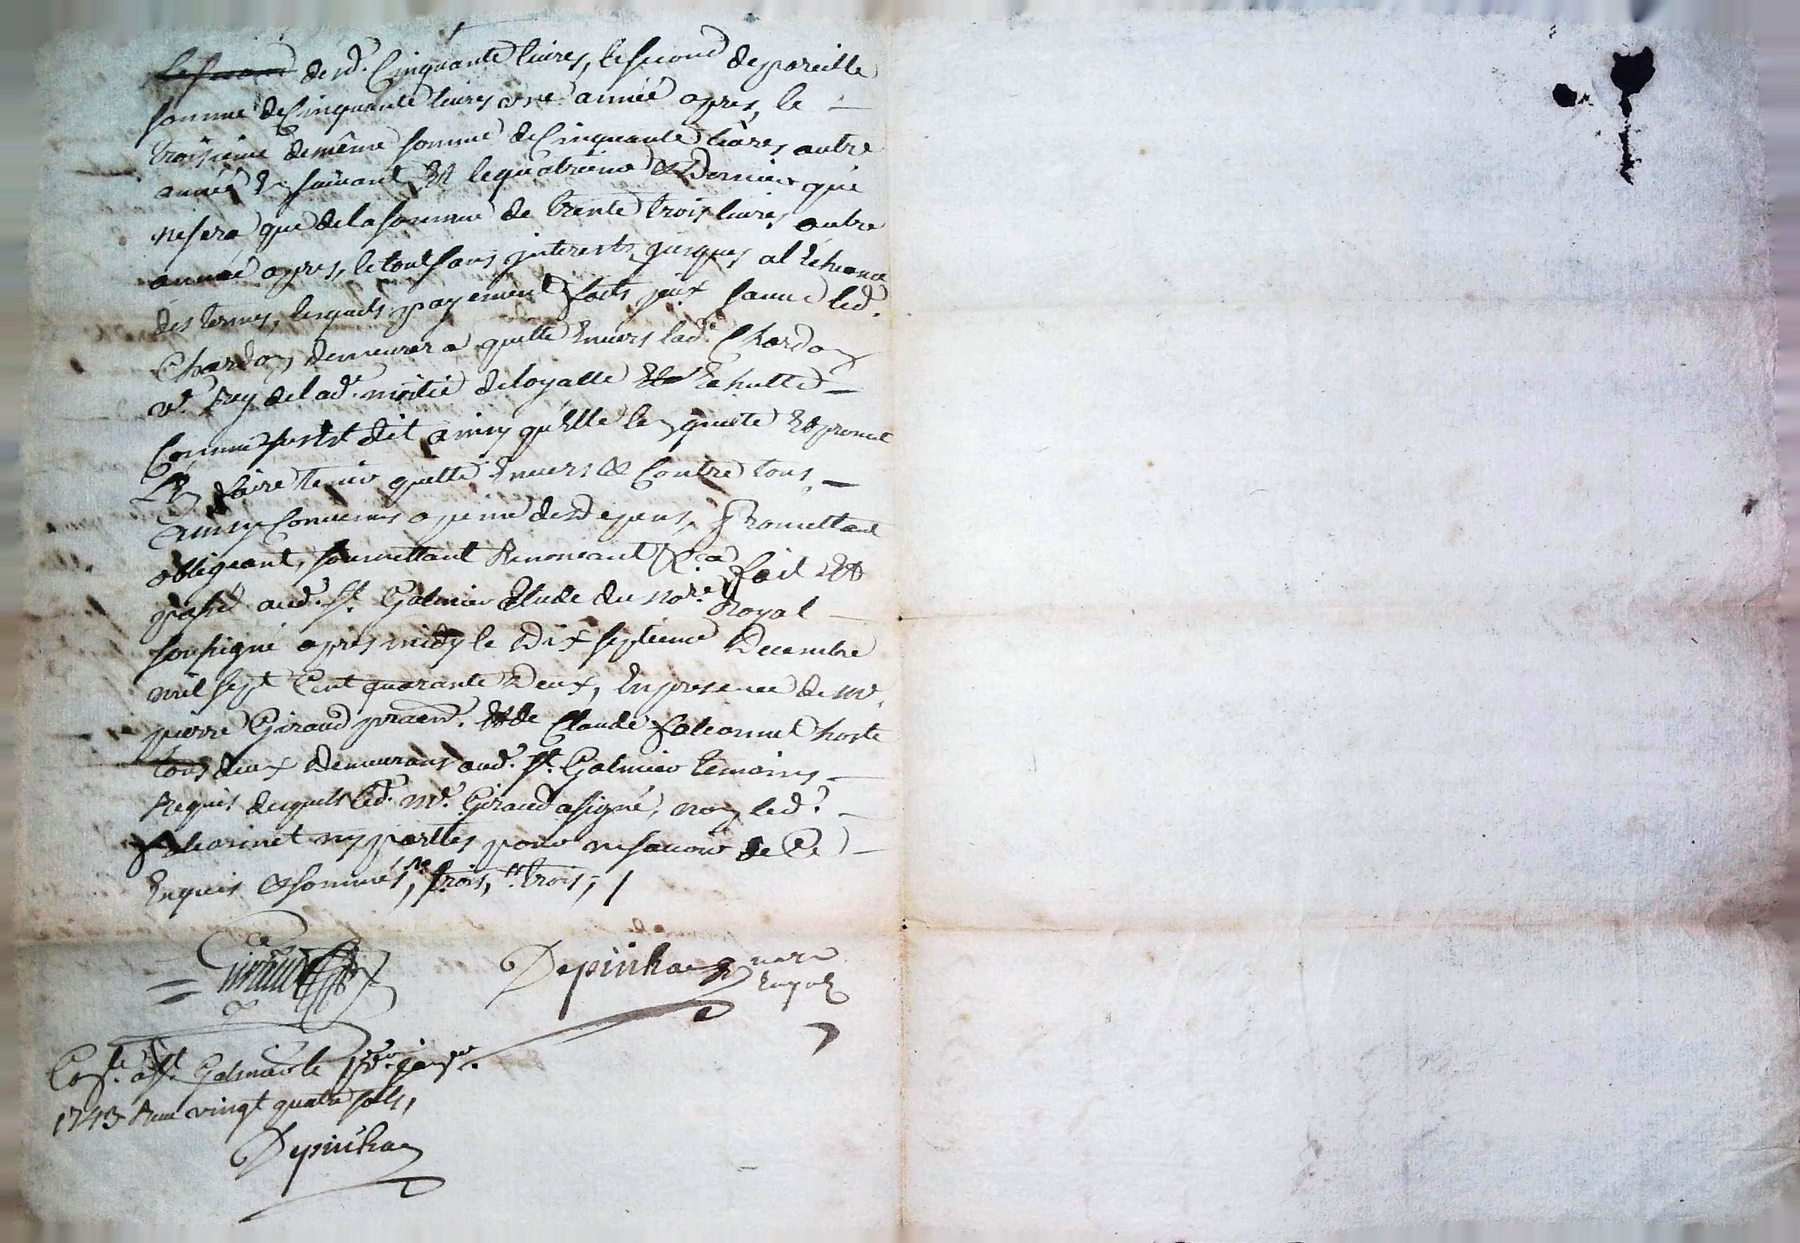 de lad. Cinquante livres, le second de pareille
somme de Cinquante livres une année apres, le
troisieme de même somme de Cinquante livres autre
année suivant Et le quatrième & Dernier que
ne sera que de la somme de trente trois livres autre
année apres, le tout sans interests jusques a l'Echeance
des termes, lesquels payement faits led.
Chardon demeurera quitte Envers lad. Chardon
ve. frey de lad. moitié de loyalle
Comme est dit ainsy qu'Elle le quitte Et promet
faire tenir quitte Envers & Contre tous,
Ainsy Convenus a peine des Depens, Promettant
obligeant, soumettant Renoncant &.a fait Et
passé aud. St. Galmier Etude du no.re Royal
soussigné apres midy le Dix septieme Decembre
mil sept Cent quarante Deux, En presence de me.
pierre Giraud pratn. Et de Claude falconnet hoste
tous deux Demeurans aud. St. Galmier temoins
Requis desquels led. me. Giraud a signé, non led.
falconnet ny parties pour ne savoir de Ce
Enquis & sommés, trois, trois, /
Giraud
Depinhac no.re
Royal
Con.lé a St. Galmier le janv.er
1743 Reçu vingt quatre sols,
Depinhac